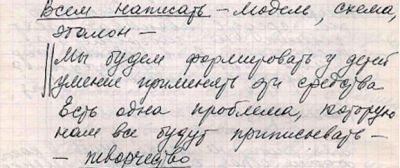 Всем написать – модель, схема,
эталон –
Мы будем формировать у детей
умение применять эти средства
Есть одна проблема, которую
нам все будут приписывать –
– творчество